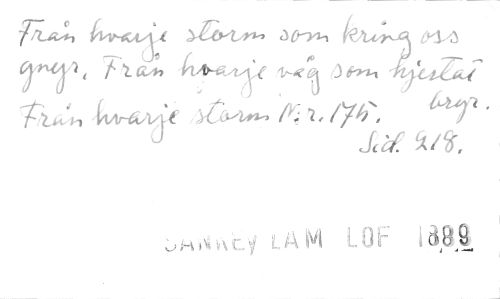 Från hvarje storm som kring oss
gnyr, Från hvarje våg som hjestat
bryr.
Från hvarje storm N:r. 175.
Sid. 218.
SANKEY LAM LOF 1889